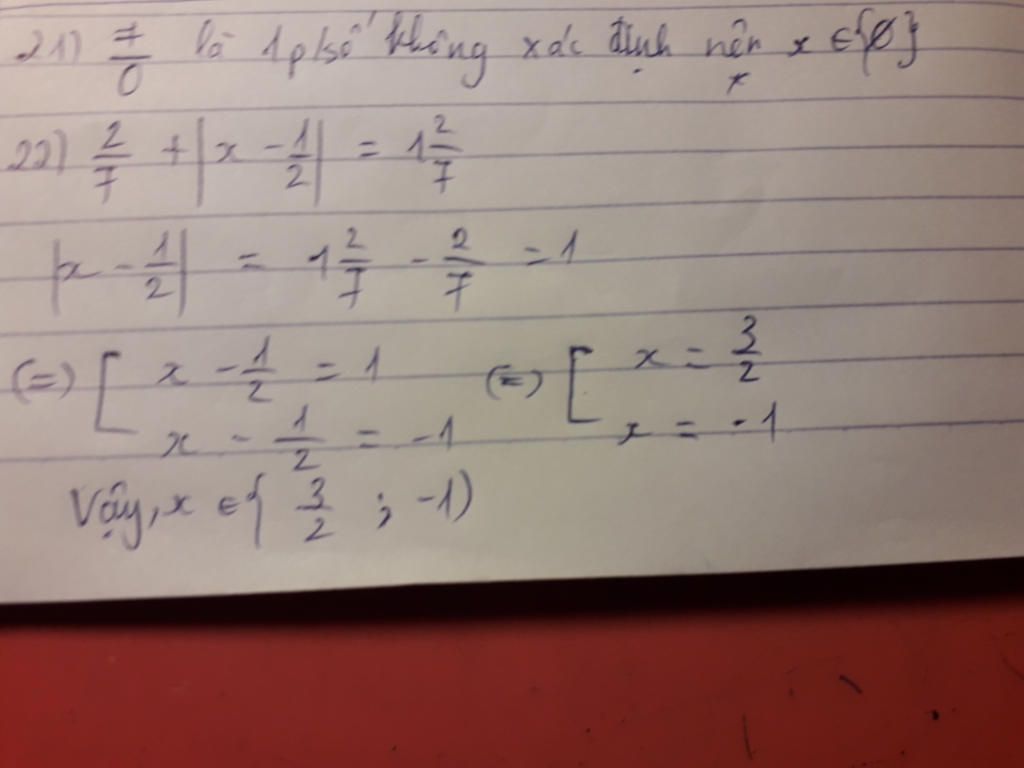 21) 7/0 là 1 p/số không xác định nên x ∈ {Ø}
22) 2/7 + |x - 1/2| = 1 2/7
|x - 1/2| = 1 2/7 - 2/7 = 1
(=) [ x - 1/2 = 1 (=) [ x = 3/2
x - 1/2 = -1 x = -1
Vậy, x ∈ { 3/2 ; -1)